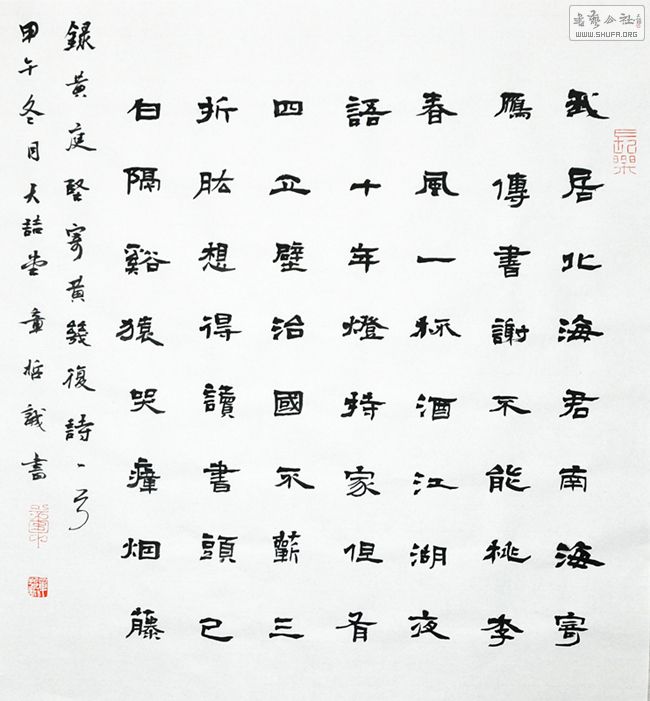 我居北海君南海寄
鴈傳書謝不能桃李
春風一杯酒江湖夜
語十年燈持家但有
四立壁治國不蘄三
折肱想得讀書頭已
白隔谿猿哭瘴烟藤
錄黃庭堅寄黃幾復詩一首
甲午冬月天喆堂 書
書藝公社
WWW.SHUFA.ORG